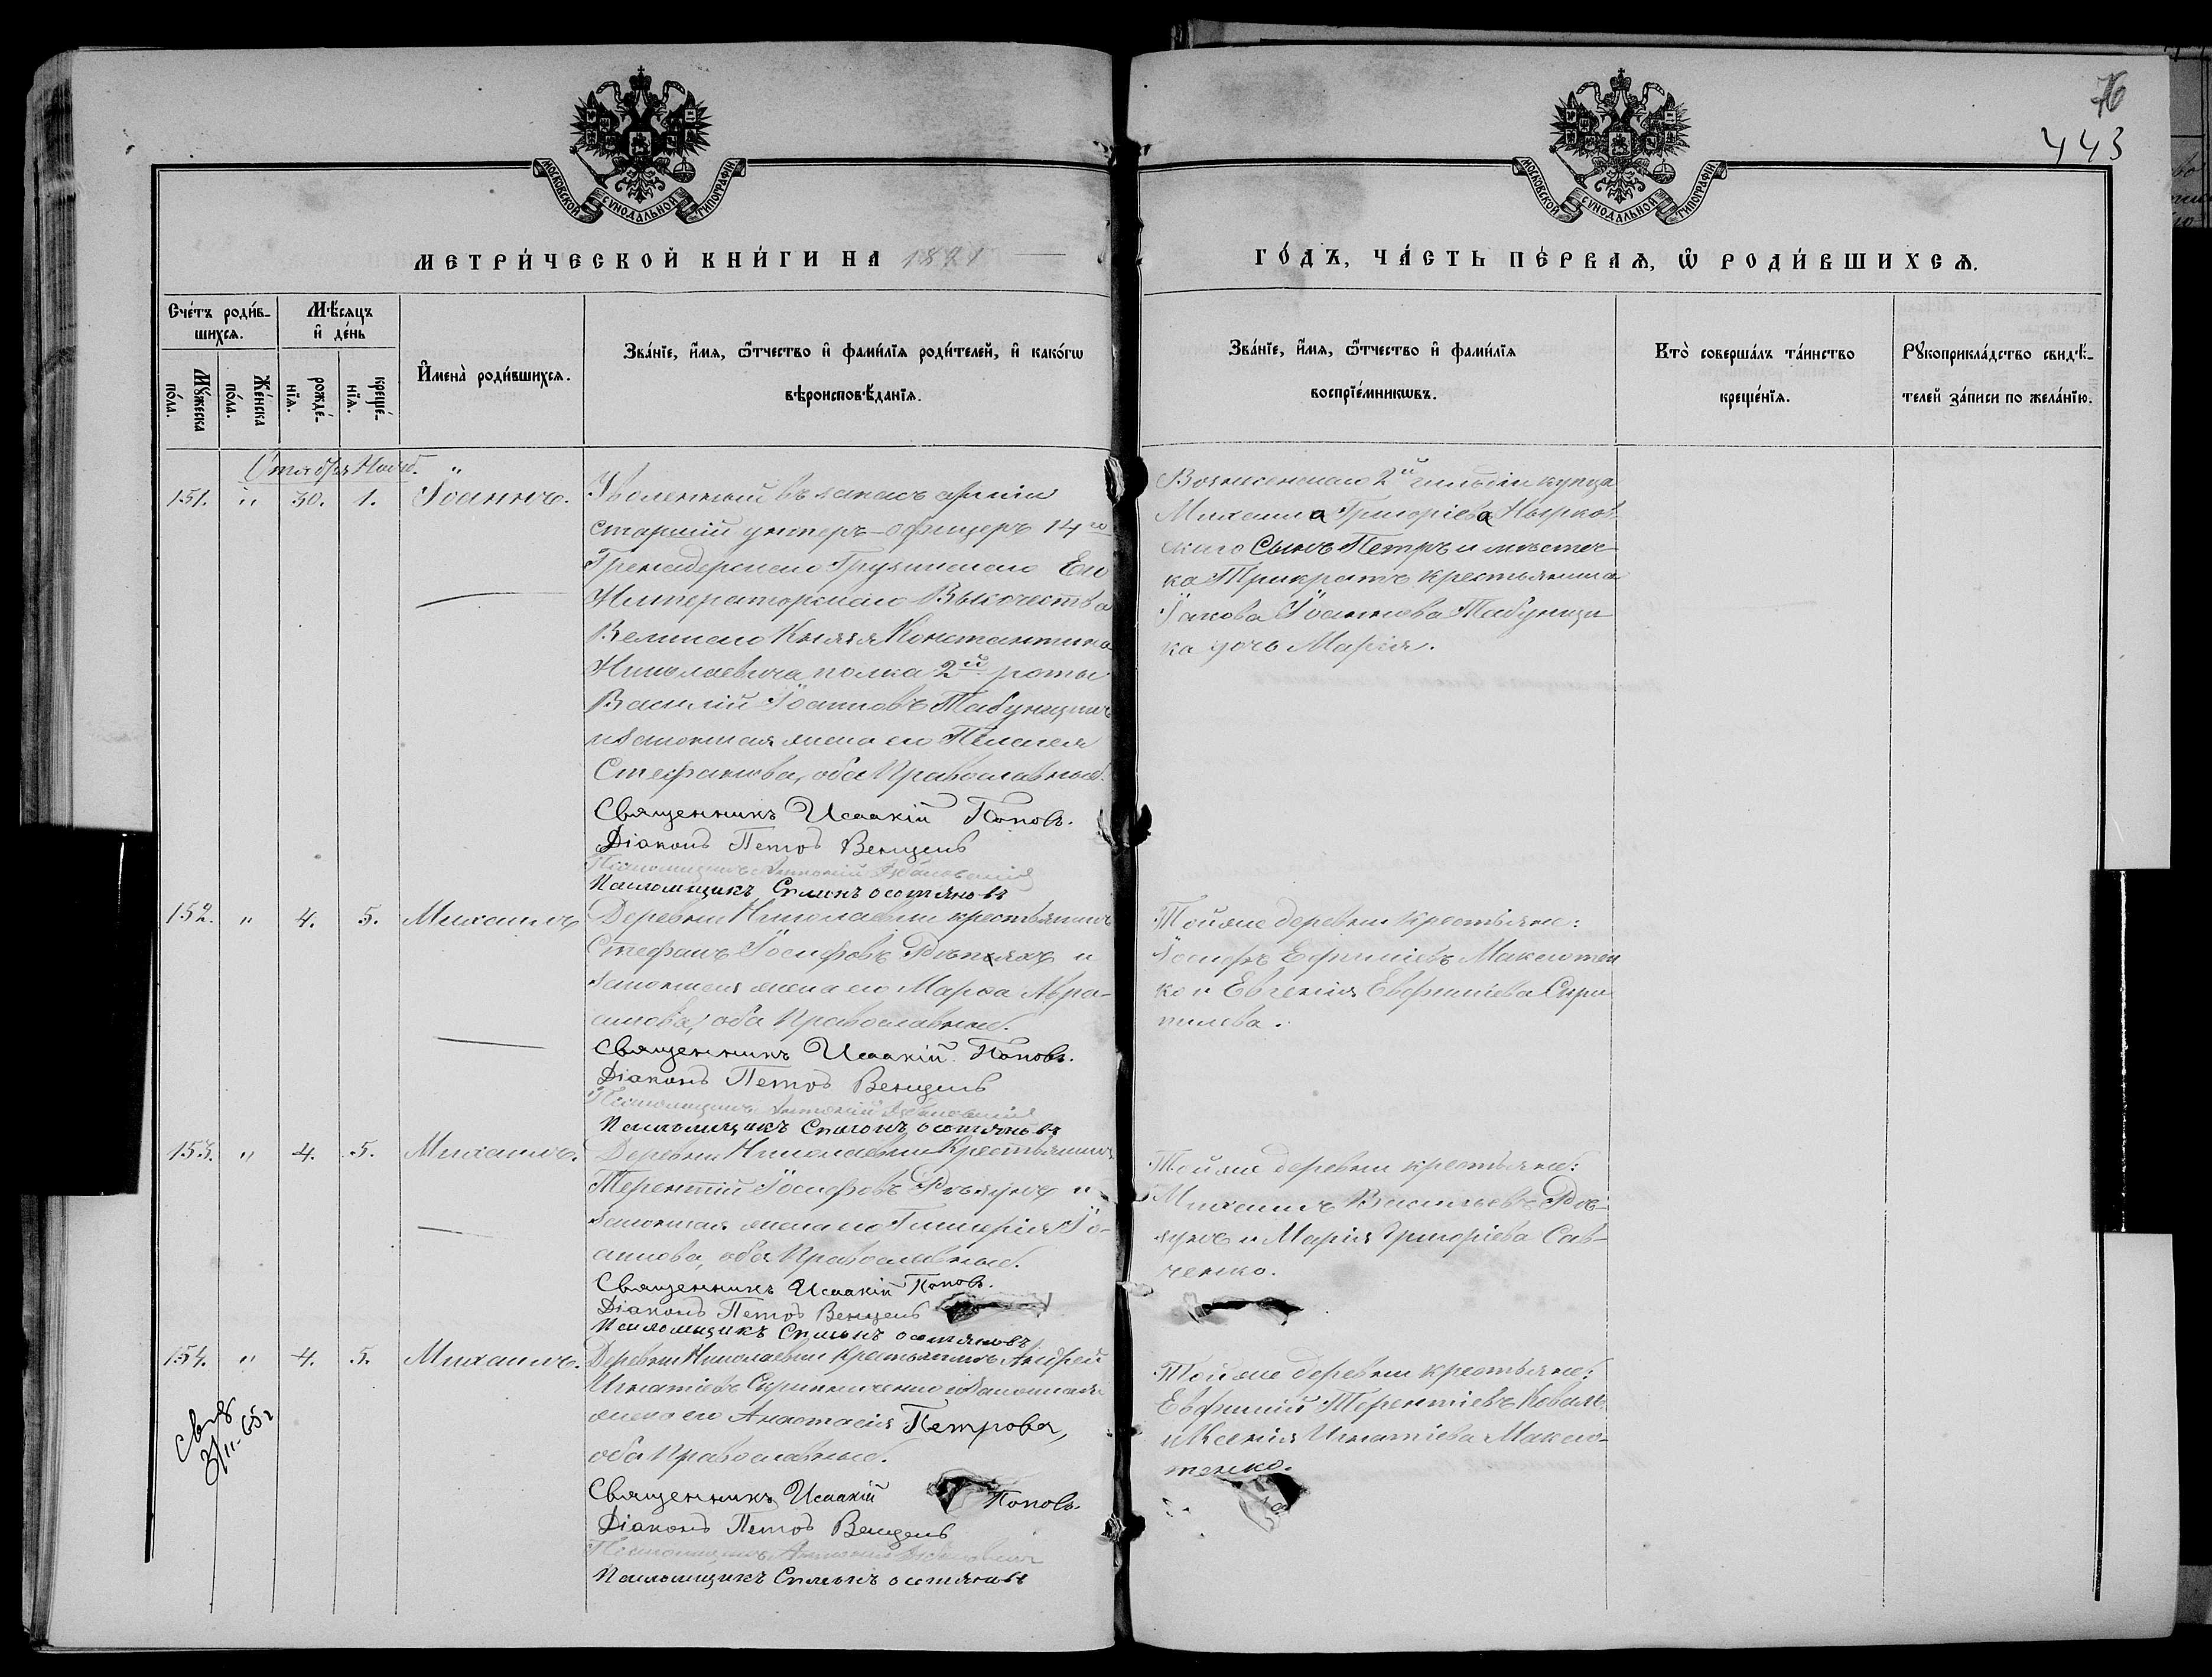 76
443
МОСКОВСКОЙ СѴНОДАЛЬНОЙ ТИПОГРАФІИ.
МОСКОВСКОЙ СѴНОДАЛЬНОЙ ТИПОГРАФІИ.
МЕТРИ́ЧЕСКОЙ КНИ́ГИ НА 1891
ГО́ДЪ, ЧА́СТЬ ПЕ́РВАѦ, Ѡ҆ РОДИ́ВШИХСѦ.
Сче́тъ роди́в-
шихсѧ.
Мѣ́сѧцъ
и҆ де́нь
Мꙋ́жеска по́ла.
Же́нска по́ла.
рожде́-нїѧ.
креще́-нїѧ.
И҆мена̀ роди́вшихсѧ.
Зва́нїе, и҆́мѧ, ѻ҆́тчество и҆ фами́лїѧ роди́телей, и҆ како́гѡ
вѣроисповѣ́данїѧ.
Зва́нїе, и҆́мѧ, ѻ҆́тчество и҆ фами́лїѧ
воспрїе́мникѡвъ.
Кто̀ соверша́лъ та́инство
креще́нїѧ.
Рꙋкоприкла́дство свидѣ́-
телей за́писи по жела́нїю.
Октября Нояб.
151. " 30. 1. Іоаннъ.
Уволенный въ запасъ арміи
старшій унтеръ-офицеръ 14го
Гренадерскаго Грузинскаго Его
Императорскаго Высочества
Великаго Князя Константина
Николаевича полка 2й роты
Василій Іоанновъ Табунщикъ
и законная жена его Пелагея
Стефанова, оба Православные.
Священникъ Исаакій Поповъ.
Діаконъ Петръ Венцель
Псаломщикъ Антоній
Псаломщикъ
Вознесенскаго 2й гильдіи купца
Михаила Григоріева
скаго Сынъ Петръ и мѣстеч-
ка Трикратъ крестьянина
Іакова Іоаннова Табунщи-
ка дочь Марія.
152. " 4. 5. Михаилъ
Деревни Николаевки крестьянинъ
Стефанъ Іосифовъ и
законная жена его Марѳа Авра-
амова, оба Православные.
Священникъ Исаакій Поповъ.
Діаконъ Петръ Венцель
Псаломщикъ Антоній
Псаломщикъ
Той же деревни крестьяне:
Іосифъ Ефиміевъ Максютен
ко и Евгенія Евфиміева Скри
пилева.
153. " 4. 5. Михаилъ.
Деревни Николаевки Крестьянинъ
Терентій Іосифовъ и
законная жена его Гликерія Іо-
аннова, оба Православные.
Священникъ Исаакій Поповъ.
Діаконъ Петръ Венцель
Псаломщикъ
Той же деревни крестьяне:
Михаилъ Васильевъ
и Марія Григоріева Сав-
ченко.
154. " 4. 5. Михаилъ.
Деревни Николаевки Крестьянинъ Андрей
Игнатіевъ и законная
жена его Анастасія Петрова,
оба Православные.
Священникъ Исаакій Поповъ.
Діаконъ Петръ Венцель
Псаломщикъ Антоній
Псаломщикъ
Той же деревни крестьяне:
Евфимій Терентіевъ Коваль
и Ксенія Игнатіева Максю-
тенко.